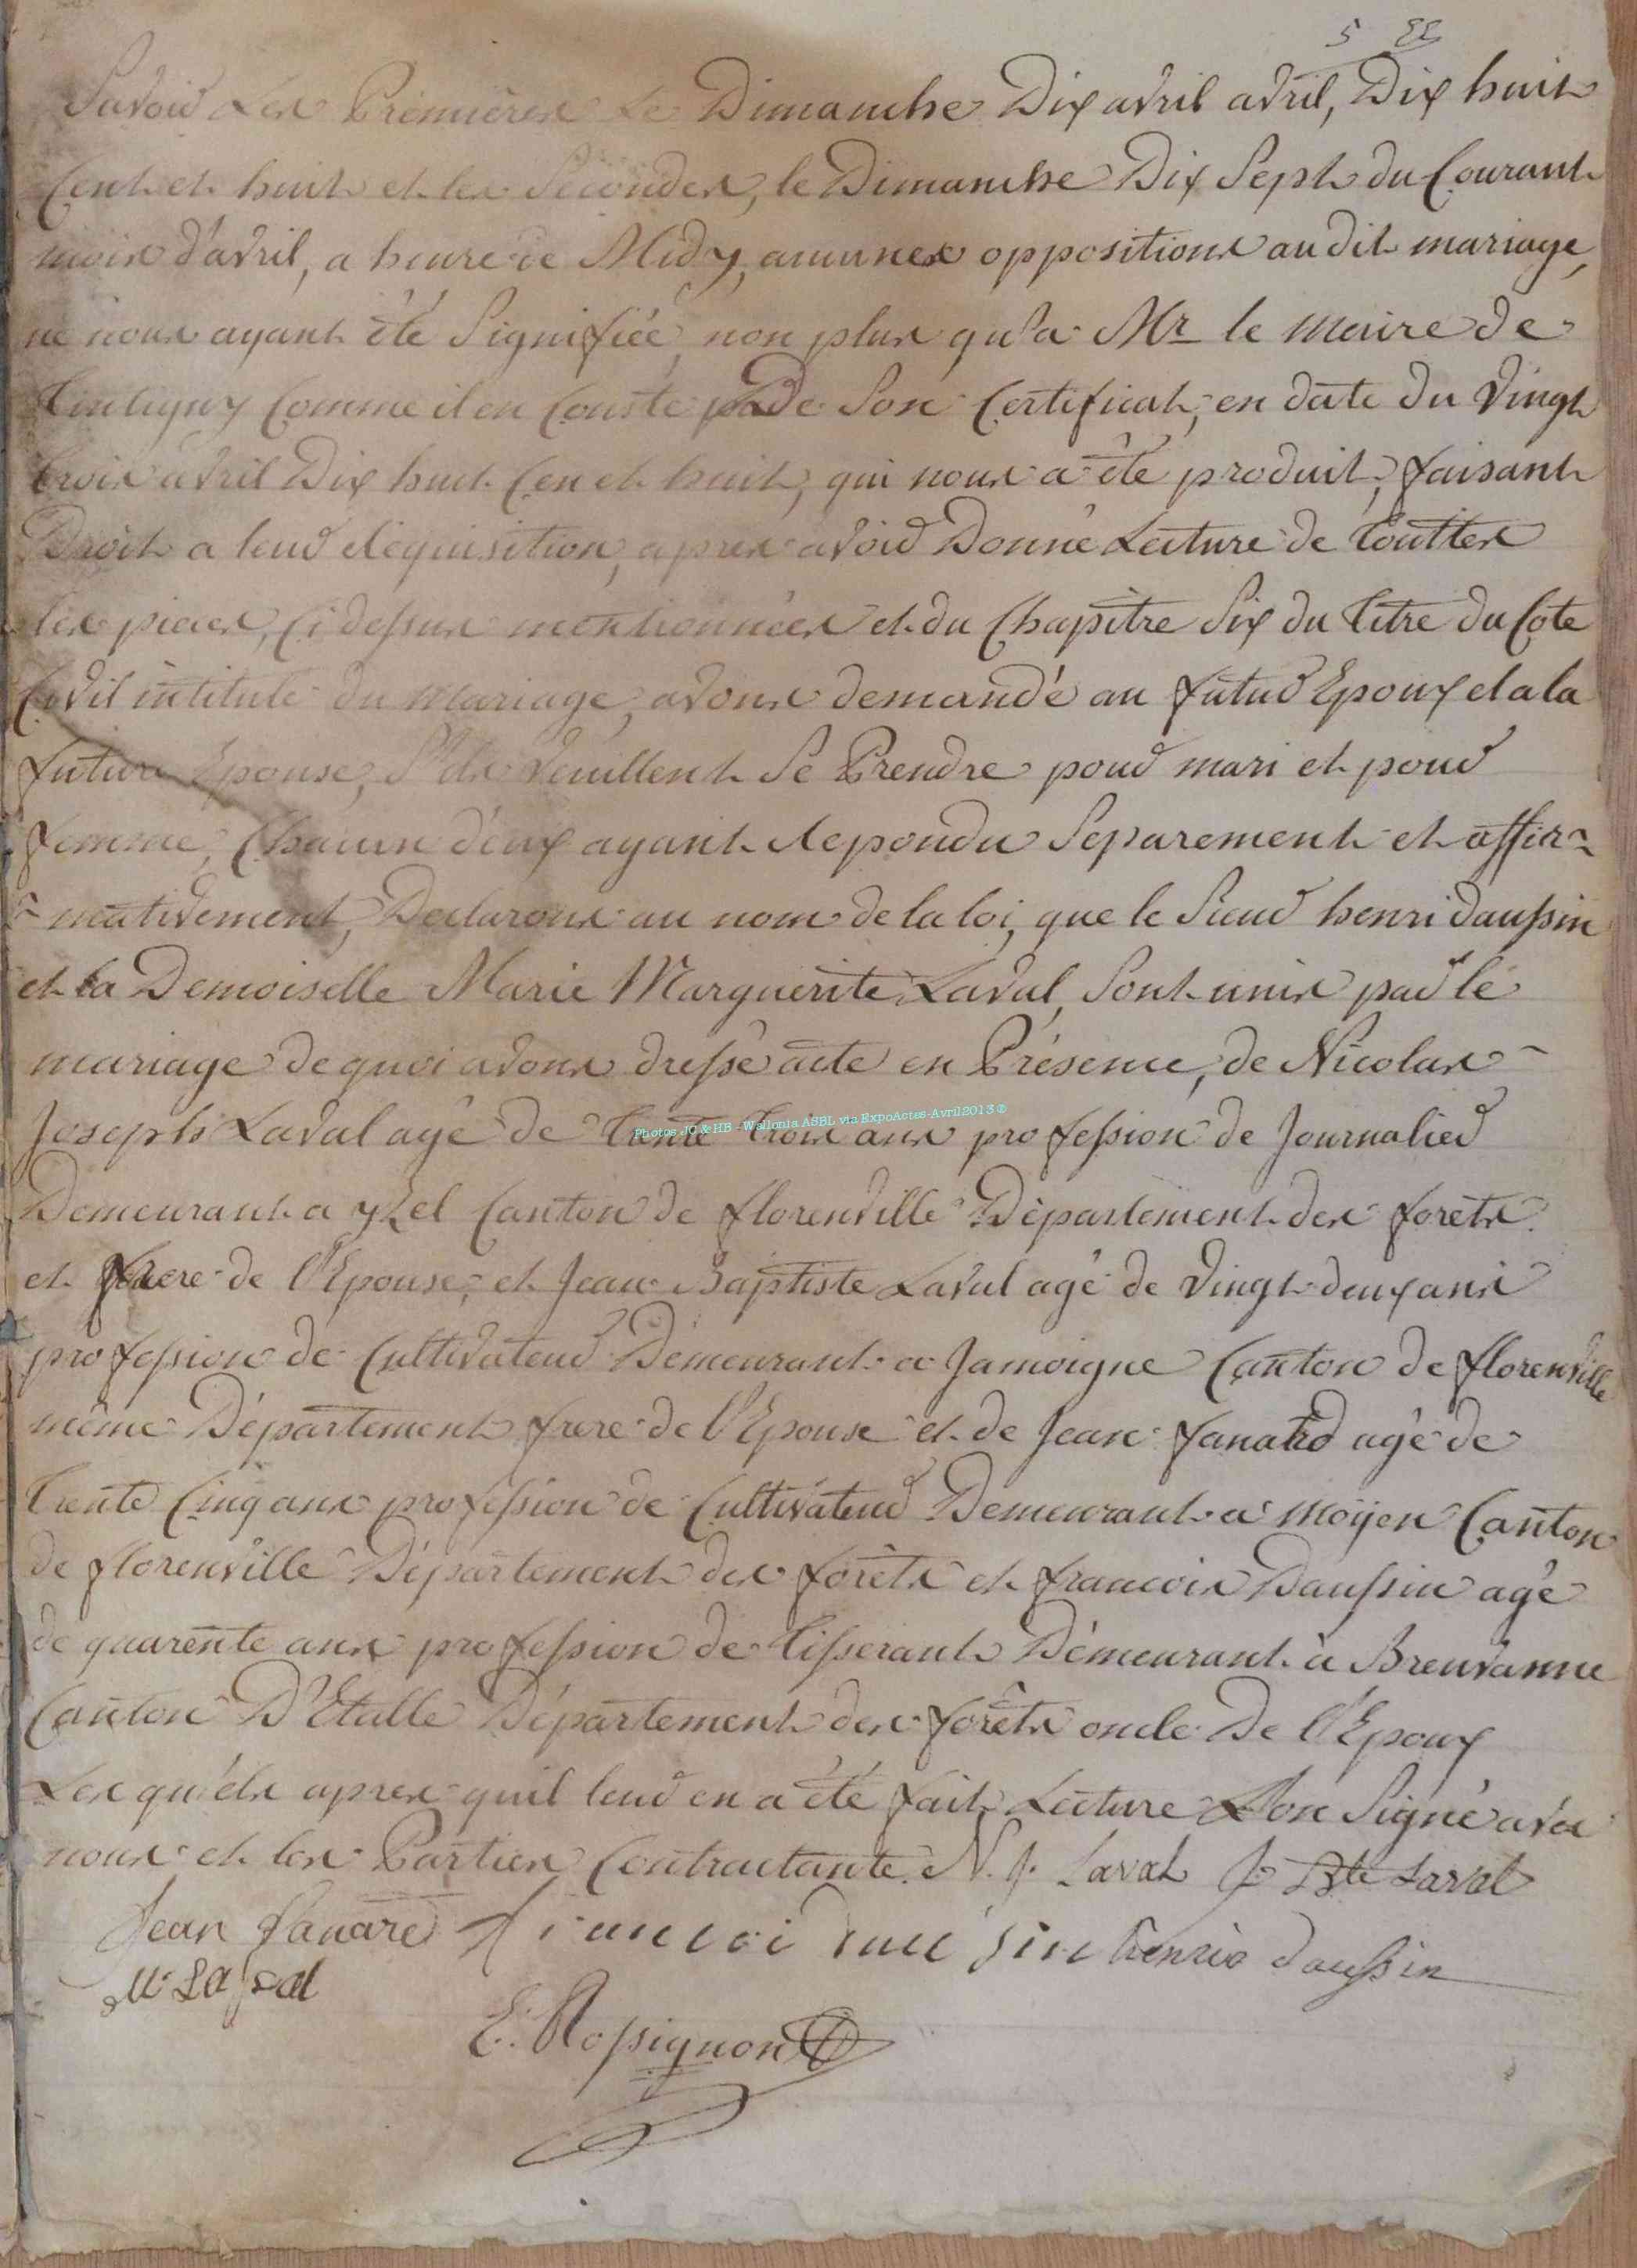 5 22
Savoir Les Premières Le Dimanche Dix avril avril, Dix huit
Cent et huit et les Secondes, le Dimanche Dix Sept du Courant
mois d'avril, a heure de Midy, aucunes oppositions au dit mariage,
ne nous ayant été Signifiée, non plus qu'a Mr le Maire de
Tintigny Comme il en Conste de Son Certificat, en date du Vingt
trois avril Dix huit Cen et huit, qui nous a été produit, faisant
Droit a leur Requisition, apres avoir Donné Lecture de touttes
les pieces, Ci dessus mentionnées et du Chapitre Six du titre du Cote
Civil intitulé du Mariage, avons demandé au futur Epoux et a la
future Epouse, S'ils Veuillent Se Prendre pour mari et pour
femme, Chacun d'eux ayant Repondu Separement et affir-
-mativement, Declarons au nom de la loi, que le Sieur henri daussin
et la Demoiselle Marie Marguerite Laval, Sont unis par le
mariage de quoi avons dressé acte en Présence, de Nicolas
Joseph Laval agé de trente trois ans profession de Journalier
Photos JC & HB - Wallonia ASBL via ExpoActes-Avril2013 ©
Demeurant a yzel Canton de florenville Département des forêts
et frere de l'Epouse, et Jean Baptiste Laval agé de Vingt deux ans
profession de Cultivateur Demeurant a Jamoigne Canton de florenville
même Département frere de l'Epouse et de Jean fanard agé de
trente Cinq ans profession de Cultivateur Demeurant a moÿen Canton
de florenville Département des forêts et francois Daussin agé
de quarente ans profession de tisserant Demeurant à Breuvanne
Canton D'Etalle Département des forêts oncle De l'Epoux
Lesquéls apres quil leur en a été fait Lecture L'on Signé avec
nous et les Parties Contractante. N. J. Laval J. Bte Laval
Jean fanard henris daussin
M Laval
E. Rossignon